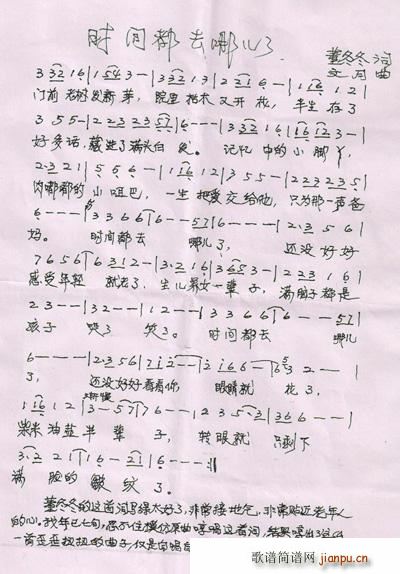 时间都去哪儿了
董冬冬 词
文 同 曲
3 3̲2̲ 1 6 | 1 5̲4̲ 3 — | 3 3̲2̲ 1 3 | 2 2̲1̲ 6 — | 1 1̲6̲ 1 2 |
门前 老树 发新 芽， 院里 枯木 又开 花， 半生 存了
3 5 5 — | 2 2 3 2 3 5 7 | 6 — — — | 3 3 2 1 6 | 1 6 1 2 3 — |
好多话， 藏进了满头白 发。 记忆 中的小脚丫，
2· 3 2 1 | 5 5 6 — | 1 1 6 1 2 | 3 5 5 — | 2 2 3 2 3 5 |
肉嘟嘟的 小 咀巴， 一生 把爱 交给他， 只为那一声爸
6 — — — | 3 3 6 6 | 6 — — 5 7 | 6 — — — | 2· 3 5 6 |
妈。 时间都去 哪儿了， 还没好好
7 6 5 6 | 6 3 1 2 — | 3· 2 1 6 | 3 6 5 3 — | 2 2 3 1 6 |
感受年轻 就老了， 生儿养女一辈子， 满脑子都是
2 3 — — | 1 2 — — | 1 2 — — | 3 3 6 6 | 6 — — 5 7 |
孩子 哭了 笑了。 时间都去 哪儿
6 — — — | 2· 3 5 6 | 7 1 2 — | 2 1 6 6 — | 6 3 2 — |
了， 还没好好看看你 眼睛就 花了，
1 1 6 1 2 | 3 — 5 7 | 7 6 — — | 2 3 5 · 3 | 3 6 6 — — |
柴米油盐半 辈 子， 转眼就 只剩下
3· 2 2 1 | 1 6 — 2 1 | 6 — — — ‖
满 脸的 皱纹 了。
董冬冬的这首词写得太好了，非常接地气，非常贴近老年人
的心。我年已七旬，忍不住模仿原曲哼唱这首词，结果哼出了这么
一首歪歪扭扭的曲子，仅是自唱自
歌谱简谱网
jianpu.cn